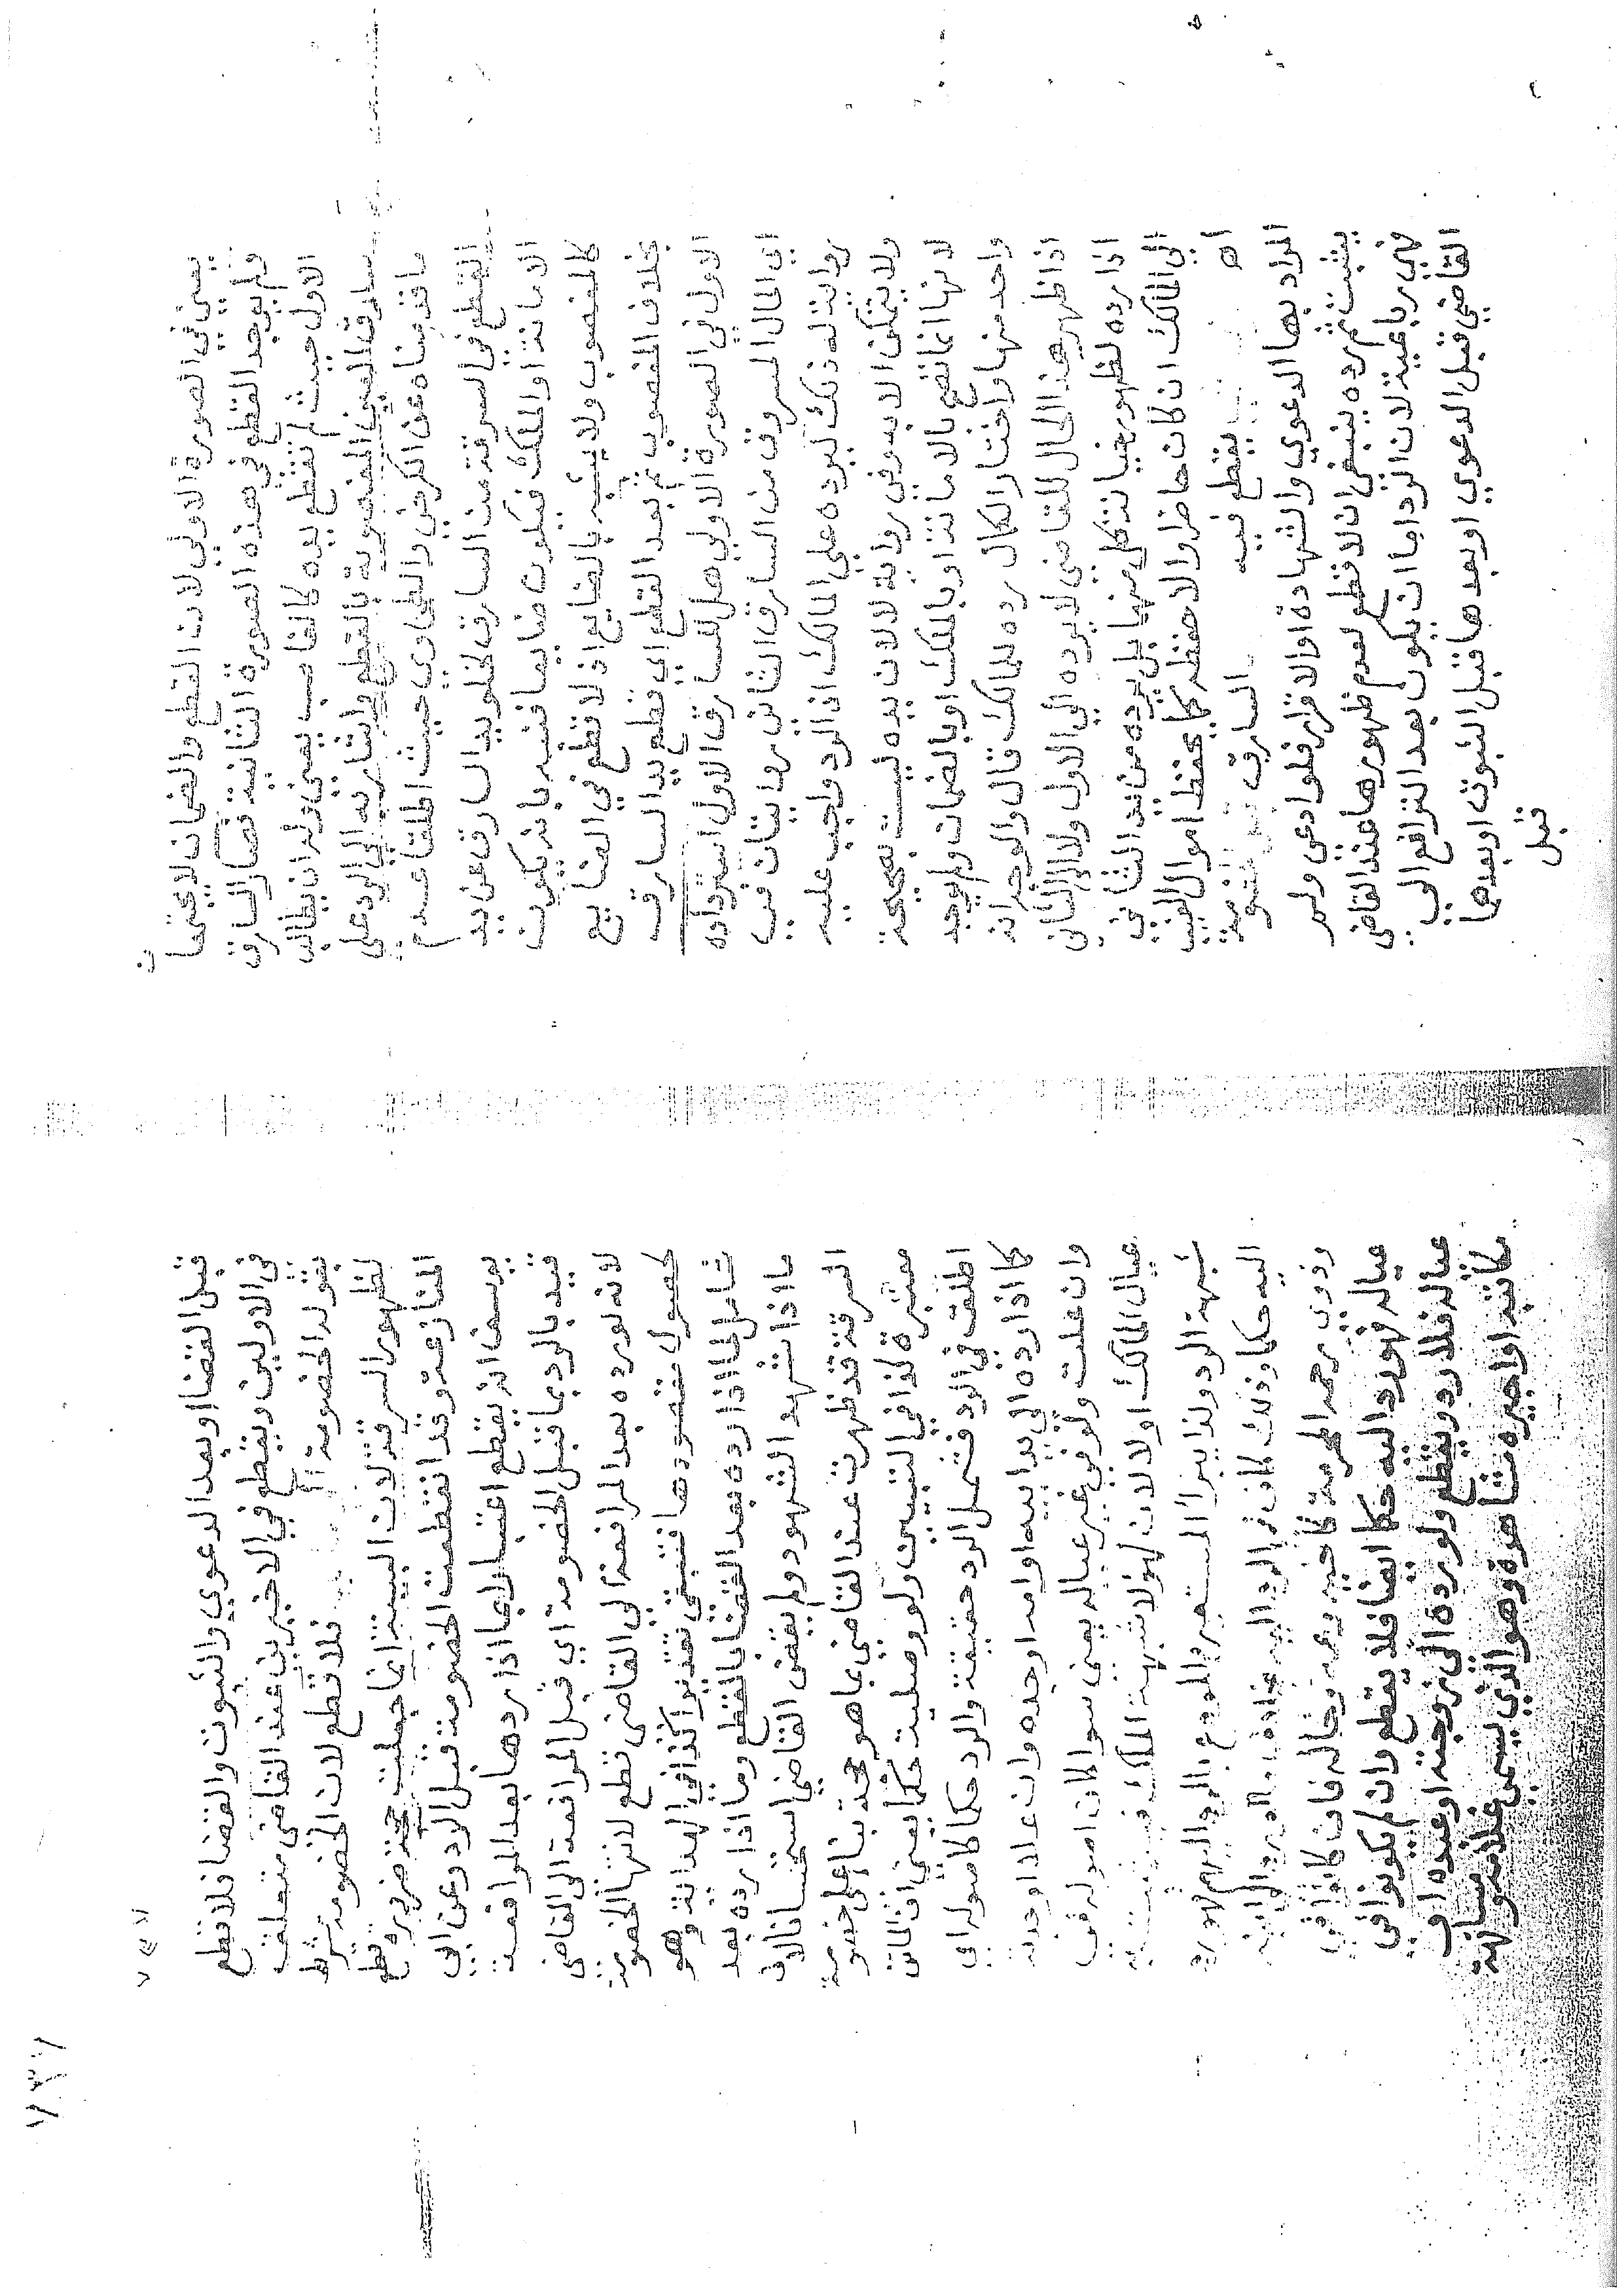 يعني في الصورة الاولي لان القطع والضمان لا يجتمعا
ن
ولم يوجد القطع في هذه الصورة الثانية فصار السارق
الاول حيث لم تقطع يده كالغاصب يعني وله ان يطالب
سارق العين المغصوبة بالقطع واشار به الي الرد علي
ما قدمناه عن الكرخي والطحاوي حيث اطلقا عدم
القطع في السرقة من السارق لخلو يد السارق عن يد
الامانة او الملك فيكون ضايعا فيه بانه يكون
كالمغصوب ولا يشبه بالضايع اذ لا قطع في الضايع
بخلاف المغصوب ثم بعد القطع اي قطع يد السارق
الاول في الصورة الاولي هل للسارق الاول استرداده
اي المال المسروق من السارق الثاني روايتان في
رواية له ذلك ليرده علي المالك اذ الرد واجب عليه
ولا يتمكن الا به وفي رواية لا لان يده ليست بصحيحة
لانها انما تصح بالامانة او بالملك او بالضمان ولم يوجد
واحد منها واختار الكمال رده للمالك قال والوجه انه
اذا ظهر هذا الحال للقاضي لا يرده الي الاول ولا الي الثاني
اذا رده لظهور خيانة كل منهما بل يرده من يد الثاني
الي المالك ان كان حاضرا والا حفظه كما يحفظ اموال الغيب
اه يقطع فيه السارق
المراد بها الدعوي والشهادة او الاقرار فلو ادعي ولم
يثبت ثم رده ينبغي ان لا قطع لعدم ظهورها عند القاضي
فهي رباعية لان الرد اما ان يكون بعد الترافع الي
القاضي قبل الدعوي او بعدها قبل الثبوت او بعدها
قبل
قبل القضا او بعد الدعوي والثبوت والقضا فلا قطع
في الاولين ويقطع في الاخيرين عند القاضي متعلقة
بقوله الخصومة فلا قطع لان الخصومة شرط
لظهور السرقة لان البينة انما جعلت حجة ضرورة قطع
المنازعة وقد انقطعت الخصومة قبل الرد وعن ابي
يوسف انه يقطع اعتبارا بما اذا ردها بعد المرافعة
قيد بالرد بما قبل الخصومة اي قبل المرافعة الي القاضي
لانه لو رده بعد المرافعة الي القاضي قطع لانتها الخصومة
كحصول مقصودها فتبقي تقديرا كذا في الهداية وهو
شامل لما اذا رده بعد القضا بالقطع وما اذا رده بعد
ما اذا شهد الشهود ولم يقض القاضي استحسانا لان
السرقة قد ظهرت عند القاضي بما هو حجة بنا علي خصومة
معتبرة كذا في التبيين ولو وصليه حكما يعني اذ الماتن
اطلق في الرد فشمل الرد حقيقة والرد حكما كاصوله اي
كما اذا رده الي يد ابيه او امه او جده وان علا او جدته
وان علت ولو في غير عياله يعني سوا كان اصوله في
عيال المالك او لا لان لهولا شبهة الملك
شبهة الرد ولذا يبرأ المستعير والمودع بالرد اليهم لو رد
اليه حكما وذلك كاف
وذوي رحمه المحرمة كاخيه وعمه وخاله فان كانوا في
عياله فهو رد اليه حكما ايضا فلا يقطع وان لم يكونوا في
عياله فلا رد ويقطع ولو رده الي زوجته او عبده او
مكاتبه او اجيره مشاهرة وهو الذي يسمي غلامه او مسانهة